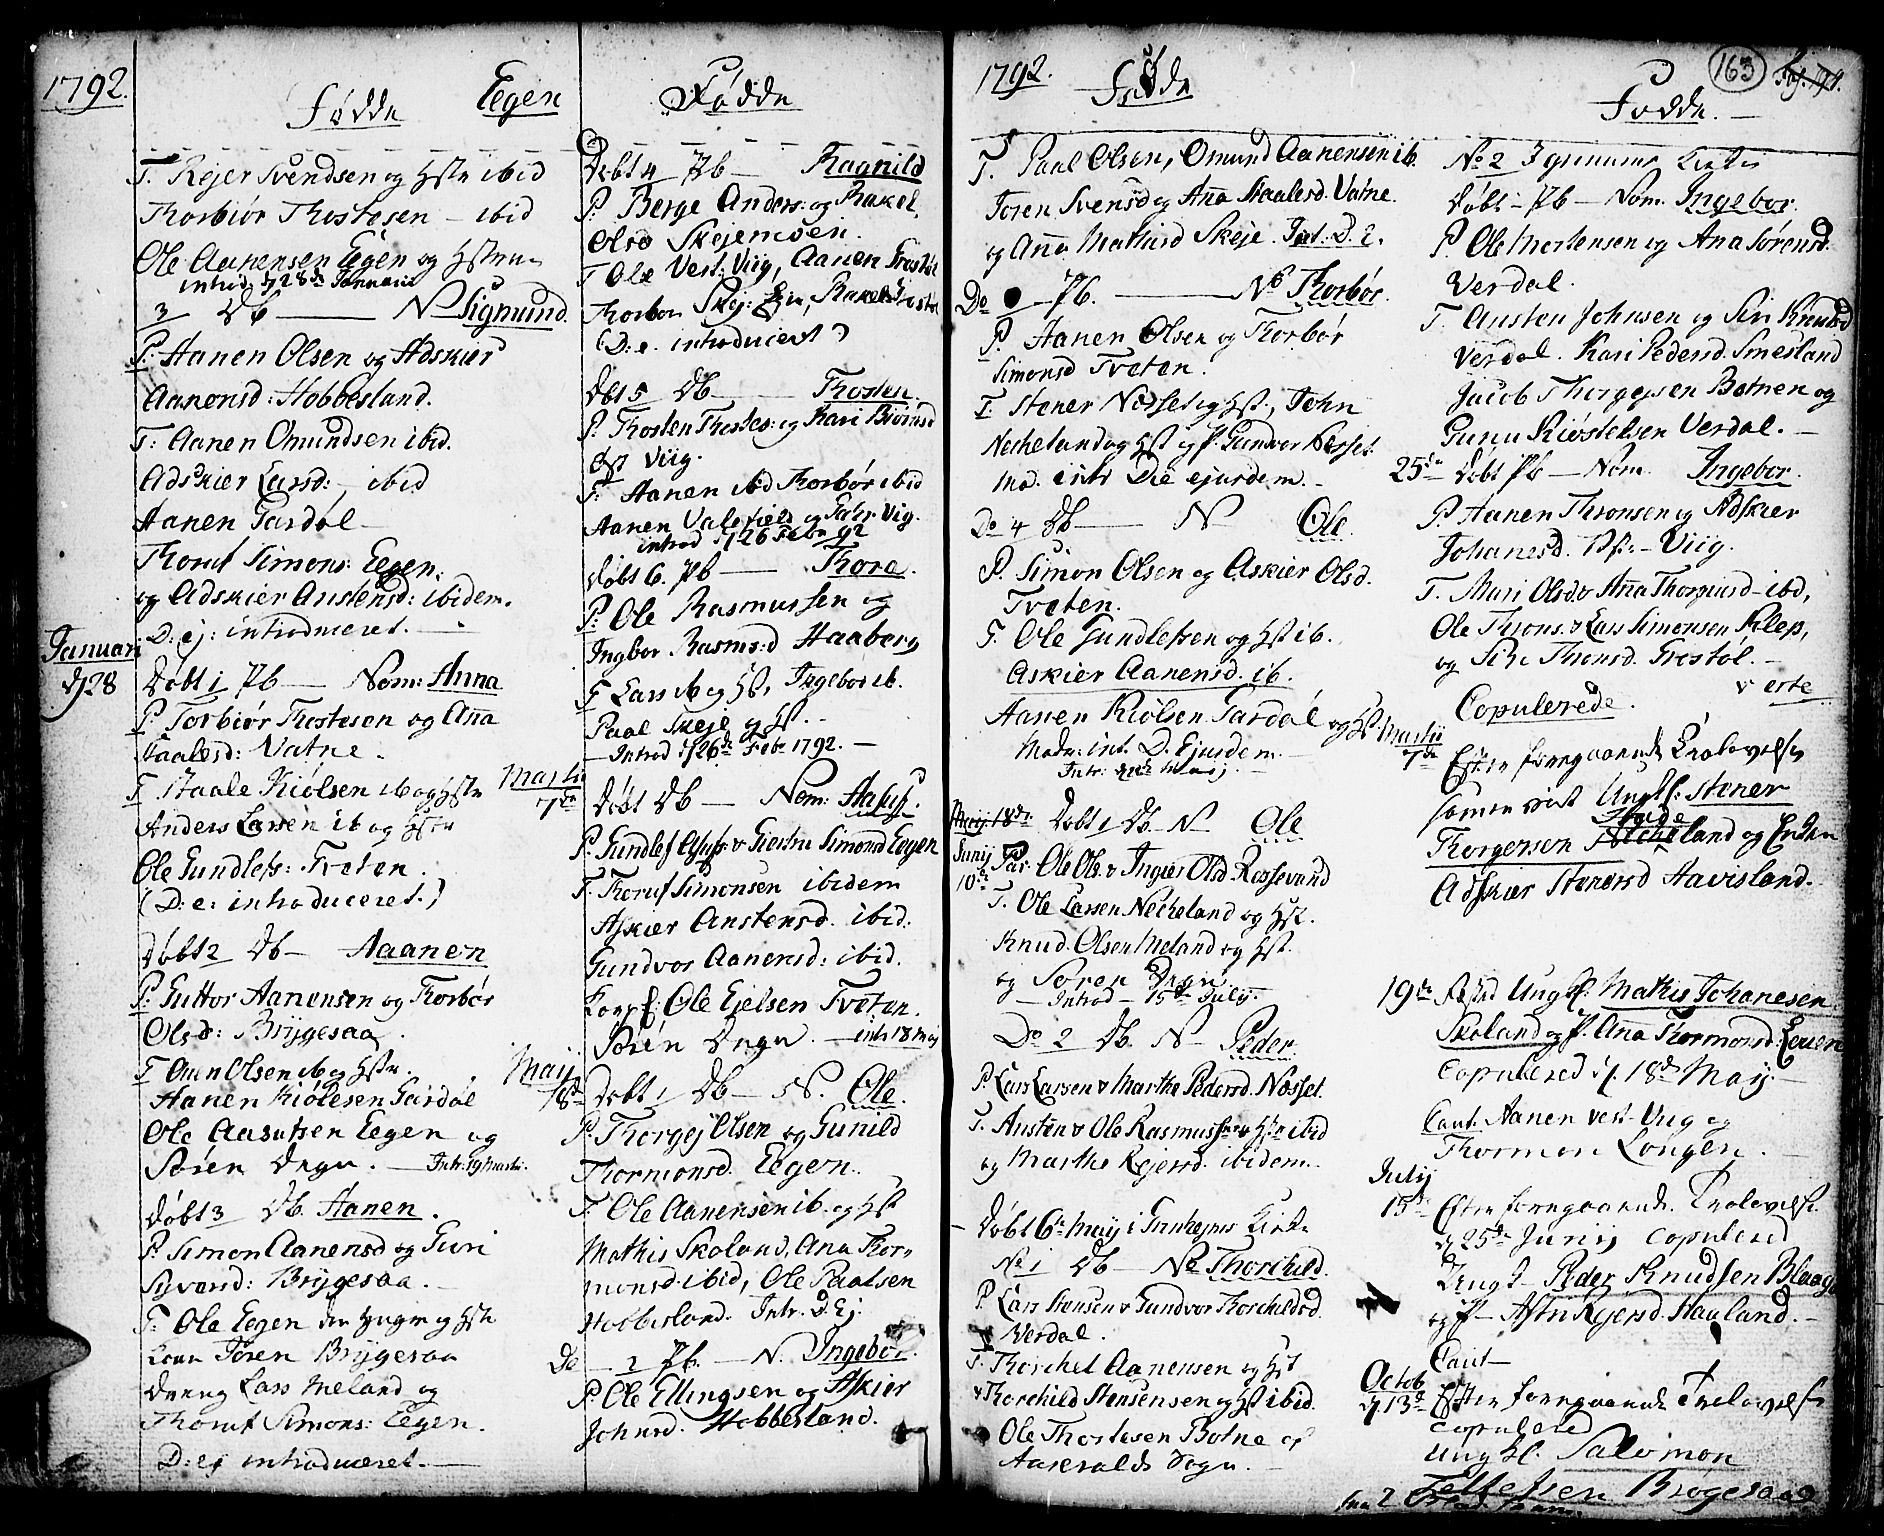 1792.
Fødde Eegen
T. Rejer Svendsen og Hstr ibid
Thorbiør Thostesen – ibid
Ole Aanensen Eegen og Hstru
introd. d. 28de Januarii
3 Db — N Sigmund.
P: Aanen Olsen og Adskier
Aanensd: Hobbesland.
T: Aanen Omundsen ibid.
Adskier Larsd: – ibid
Aanen Gardøl –
Thoruf Simons: Eegen:
og Adskier Anstensd: ibidem.
D: ej: introduceret. —
Januari
d 28
Døbt 1 Pb — Nom: Anna
P. Torbiør Thostesen og Aña
Staalesd: Vatne.
T Staale Kiølsen ib og Hstr
Anders Larsen ib og Hstr
Ole Gundlefs: Tveten.
(D: e: introduceret.)
Døbt 2 Db – Aaanen
P: Guttor Aanensen og Thorbør
Olsd: Brygesaa.
T Aun Olsen ib og Hstr.
Aanen Kiølesen Gardøl
Ole Aasulfsen Eegen og
Søren Degn. — Intr: 19 Martii.
Døbt 3 Db. Aanen.
P. Simon Aanensd og Guri
Syversd: Brygesaa. –
T: Ole Eegen den yngre og Hstr
Søren Brygesaa
Dreng Lars Meland og
Thoruf Simons: Eegen.
D: ej introduceret. —
Fødde
Døbt 4 Pb — Ragnild
P. Berge Anders: og Rakel
Olsd Skejemoen.
T Ole Vest: Viig, Aanen Frøstøl
Thorbor Skej:
(D: e. introduceret)
Døbt 5 Db — Thosten.
P. Thosten Thostes: og Kari Biørnsd
Øst Viig.
T: Aanen ibid Thorbør ibid
Aanen Valefield og Viig.
introd d 26 Febr 92
Døbt 6. Pb — Thore.
P: Ole Rasmussen og
Ingbor Rasms:d Haaberg
T Lars ib og Hst, Ingebor ib.
Paal Skeje og Hst. –
– Introd d 26de Febr 1792. –
Martii
7de
Døbt Db — Nom: Aasuf.
P. Gundlef Simonsd Eegen
T. Thoruf Simonsen ibidem
Askier Anstensd. ibid.
Gundvor Aanensd: ibid.
Ole Ejelsen Tveten.
Søren Degn. — intr 18 Maj
Maij
18de
Døbt 1 Db – N. Ole.
P. Thorgej Olsen og Gunild
Thormonsd. Eegen.
T. Ole Aanensen ib. og Hst
Mathis Skoland, Ana Thor-
monsd: ibid, Ole Paalsen
Hobbesland. Intr. D. Ej.
Do — 2 Pb. — N. Ingebor.
P. Ole Ellingsen og Askier
Johnsd. Hobbesland.
1792.
Fødde
T. Paal Olsen, Omund Aanensen ib.
Søren Svensd og Aña Staalesd. Vatne.
og Aña Matisd Skeje. Int: D. 2.
Do — Pb. — No Thorbør.
P. Aanen Olsen og Thorbør
Simonsd Tveten.
T. Stener Nosset og Hst., John
Necheland og Hst og P. Gundvor Nesset
Mod. intr Die ejusdem. –
Do 4 Db — N Ole.
P. Simon Olsen og Askier Olsd.
Tveten.
T. Ole Gundlefsen og Hst ib.
Askier Aanensd. ib.
Aanen Kiølsen Gardøl og Hst
Modr: int. D. Ejusdem.
Intr:
Maij 18de
Junij
10de
Døbt 1 Db. N Ole
Par Ole Ols. & Ingier Olsd Rossevand
T. Ole Larsen Necheland og Hst.
Knud. Olsen Meland og Hst.
og Søren Degn.
– Introd – 15de Julij.
Do 2 Db. N – Peder.
P. Lars Larsen & Marthe Pedersd. Nosset.
T. Austen & Ole Rasmussen & Hstr ibid
og Marthe Rejersd. ibidem.
– Døbt 6te Maij i Kirke
No 1 Db — No Thorchild.
P Lars Stensen & Gundvor Thorchildsd.
Verdal.
T. Thorchel Aanensen og Hst
& Thorchild Stensensen og Hst ibid.
Ole Thostesen Botne af
Aaseralds Sogn. –
163
Fødde. –
No 2 Kirke
Døbt – Pb – Nom. Ingebor.
P. Ole Mortensen og Ana Sørensd.
Verdal.
T. Austen Johnsen og Siri Knudsd
Verdal. Kari Pedersd. Smesland
Jacob Thorgejsen Botnen og
Kiøstelsen Verdal. –
25de Døbt Pb – Nom. Ingebor.
P. Aanen Thronsen og Adskier
Johanesd. Viig.
T. Mari Olsd. & Aña Thorgiersd – ibd,
Ole Throns. & Lars Simonsen Klep,
og Siri Thronsd. Frøstøl. –
v erte
Copulerede.
Martii
7de
Efter foregaaende Trolovelse
Ungkl: Stener
Thorgersen Necheland og Enken
Adskier Stenersd Haavisland.
19de Fæsted Ungkl. Mathis Johanesen
Skoland og P. Ana Thormonsd: Eeuen
Copulered d. 18de Maij. –
Caut. Aanen vest-Viig og
Thormon Longen.
Julij
15de
Efter foregaaende Trolovelse
d 25de Junij copulered
Ungk Peder Knudsen Blaag
og P. – Astri Rejersd. Hauland. –
Caut
Octob
d 13de
Efter foregaaende Trolovelse
copulered
Ung kl. Salomon
Tellefsen Brøgesaa